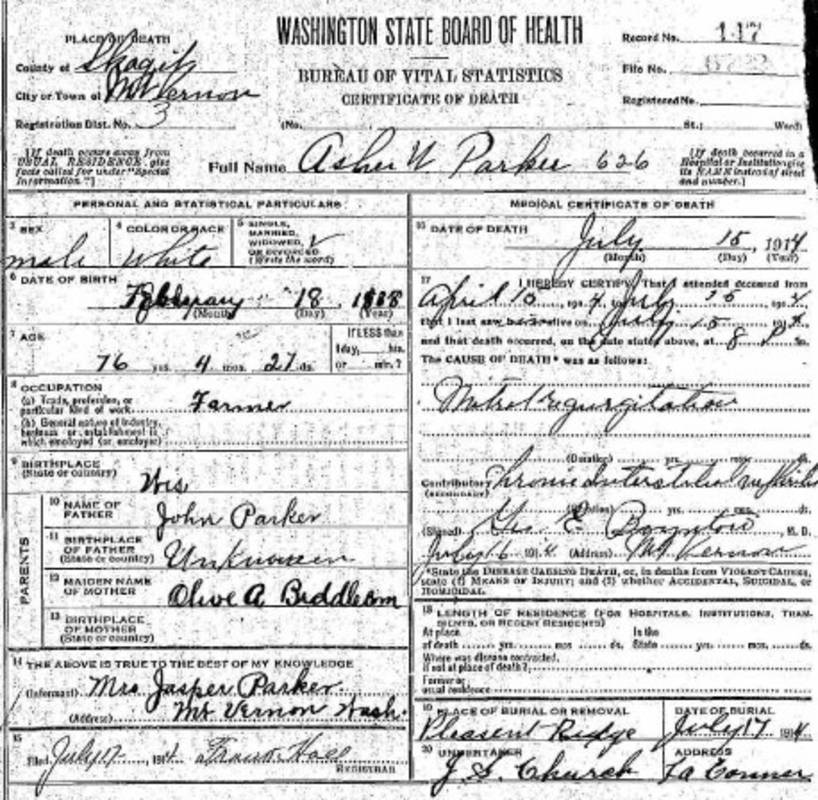 WASHINGTON STATE BOARD OF HEALTH
BUREAU OF VITAL STATISTICS
CERTIFICATE OF DEATH
PLACE OF DEATH
County of Skagit
City or Town of Mt Vernon
Registration Dist. No. 3
Record No. 117
File No.
Registered No.
(No. St.; Ward)
[If death occurs away from
USUAL RESIDENCE give
facts called for under "Special
Information."]
Full Name Asher W Parker 626
[If death occurred in
a Hospital or Institution give
its NAME instead of street
and number.]
PERSONAL AND STATISTICAL PARTICULARS
3 SEX
male
4 COLOR OR RACE
White
5 SINGLE,
MARRIED,
WIDOWED,
OR DIVORCED
(Write the word)
6 DATE OF BIRTH
February 18
(Month) (Day) (Year)
7 AGE
76 yrs. 4 mos. 27 ds.
If LESS than
1 day, hrs.
or min.?
8 OCCUPATION
(a) Trade, profession, or
particular kind of work Farmer
(b) General nature of industry,
business or establishment in
which employed (or employer)
9 BIRTHPLACE
(State or country)
Wis
PARENTS
10 NAME OF
FATHER
John Parker
11 BIRTHPLACE
OF FATHER
(State or country)
Unknown
12 MAIDEN NAME
OF MOTHER
Olive A Biddlecom
13 BIRTHPLACE
OF MOTHER
(State or country)
14 THE ABOVE IS TRUE TO THE BEST OF MY KNOWLEDGE
(Informant) Mrs Jasper Parker
(Address) Mt Vernon Wash.
15
Filed July 17, 1914
REGISTRAR
MEDICAL CERTIFICATE OF DEATH
16 DATE OF DEATH
July 15, 1914
(Month) (Day) (Year)
17 I HEREBY CERTIFY, That I attended deceased from
April 15 1914, to July 15 1914
that I last saw alive on July 15 1914
and that death occurred, on the date stated above, at 8 P m.
The CAUSE OF DEATH* was as follows:
Mitral regurgitation
(Duration) yrs. mos. ds.
Contributory Chronic Interstitial nephritis
(SECONDARY)
(Duration) yrs. mos. ds.
(Signed) Geo E Boynton, M. D.
July 16 1914 (Address) Mt Vernon
*State the DISEASE CAUSING DEATH, or, in deaths from VIOLENT CAUSES,
state (1) MEANS OF INJURY; and (2) whether ACCIDENTAL, SUICIDAL, or
HOMICIDAL.
18 LENGTH OF RESIDENCE (FOR HOSPITALS, INSTITUTIONS, TRAN-
SIENTS, OR RECENT RESIDENTS)
At place In the
of death yrs. mos. ds. State yrs. mos. ds.
Where was disease contracted,
if not at place of death?
Former or
usual residence
19 PLACE OF BURIAL OR REMOVAL
Pleasent Ridge
DATE OF BURIAL
July 17 1914
20 UNDERTAKER
J S Church
ADDRESS
La Conner